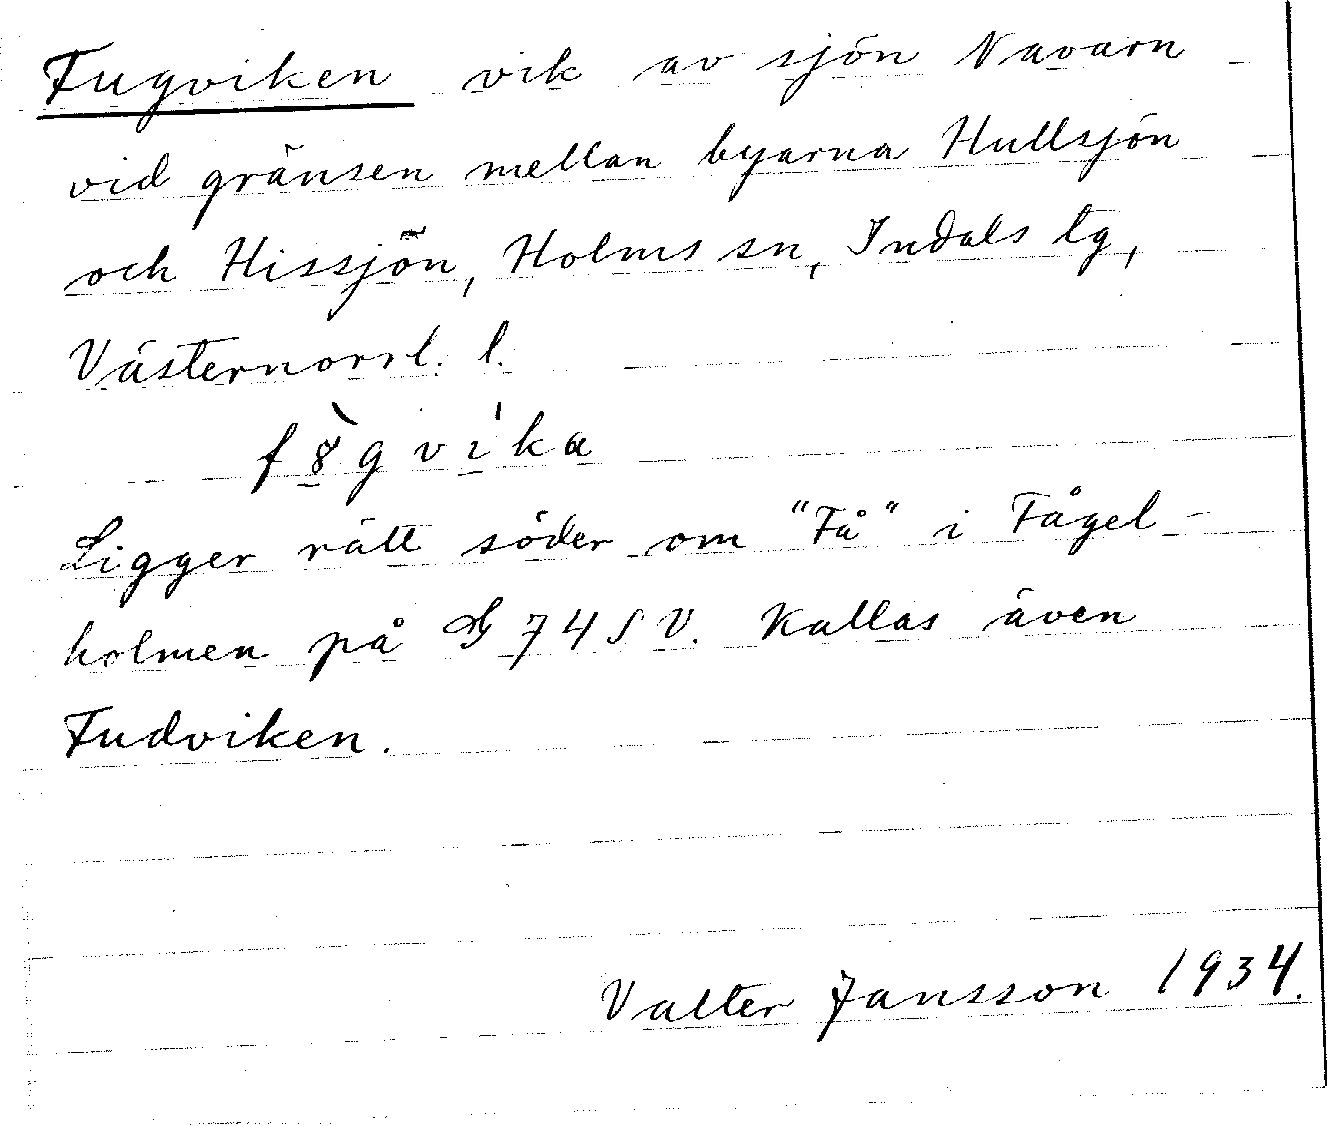 Fugviken vik av sjön Navarn
vid gränsen mellan byarna Hullsjön
och Hissjön, Holms sn, Indals tg,
Västernorrl. l.
f8̀gvı̍ka
Ligger rätt söder om "Få" i Fågel-
holmen på G 74 SV. Kallas även
Fudviken.
Valter Jansson 1934.